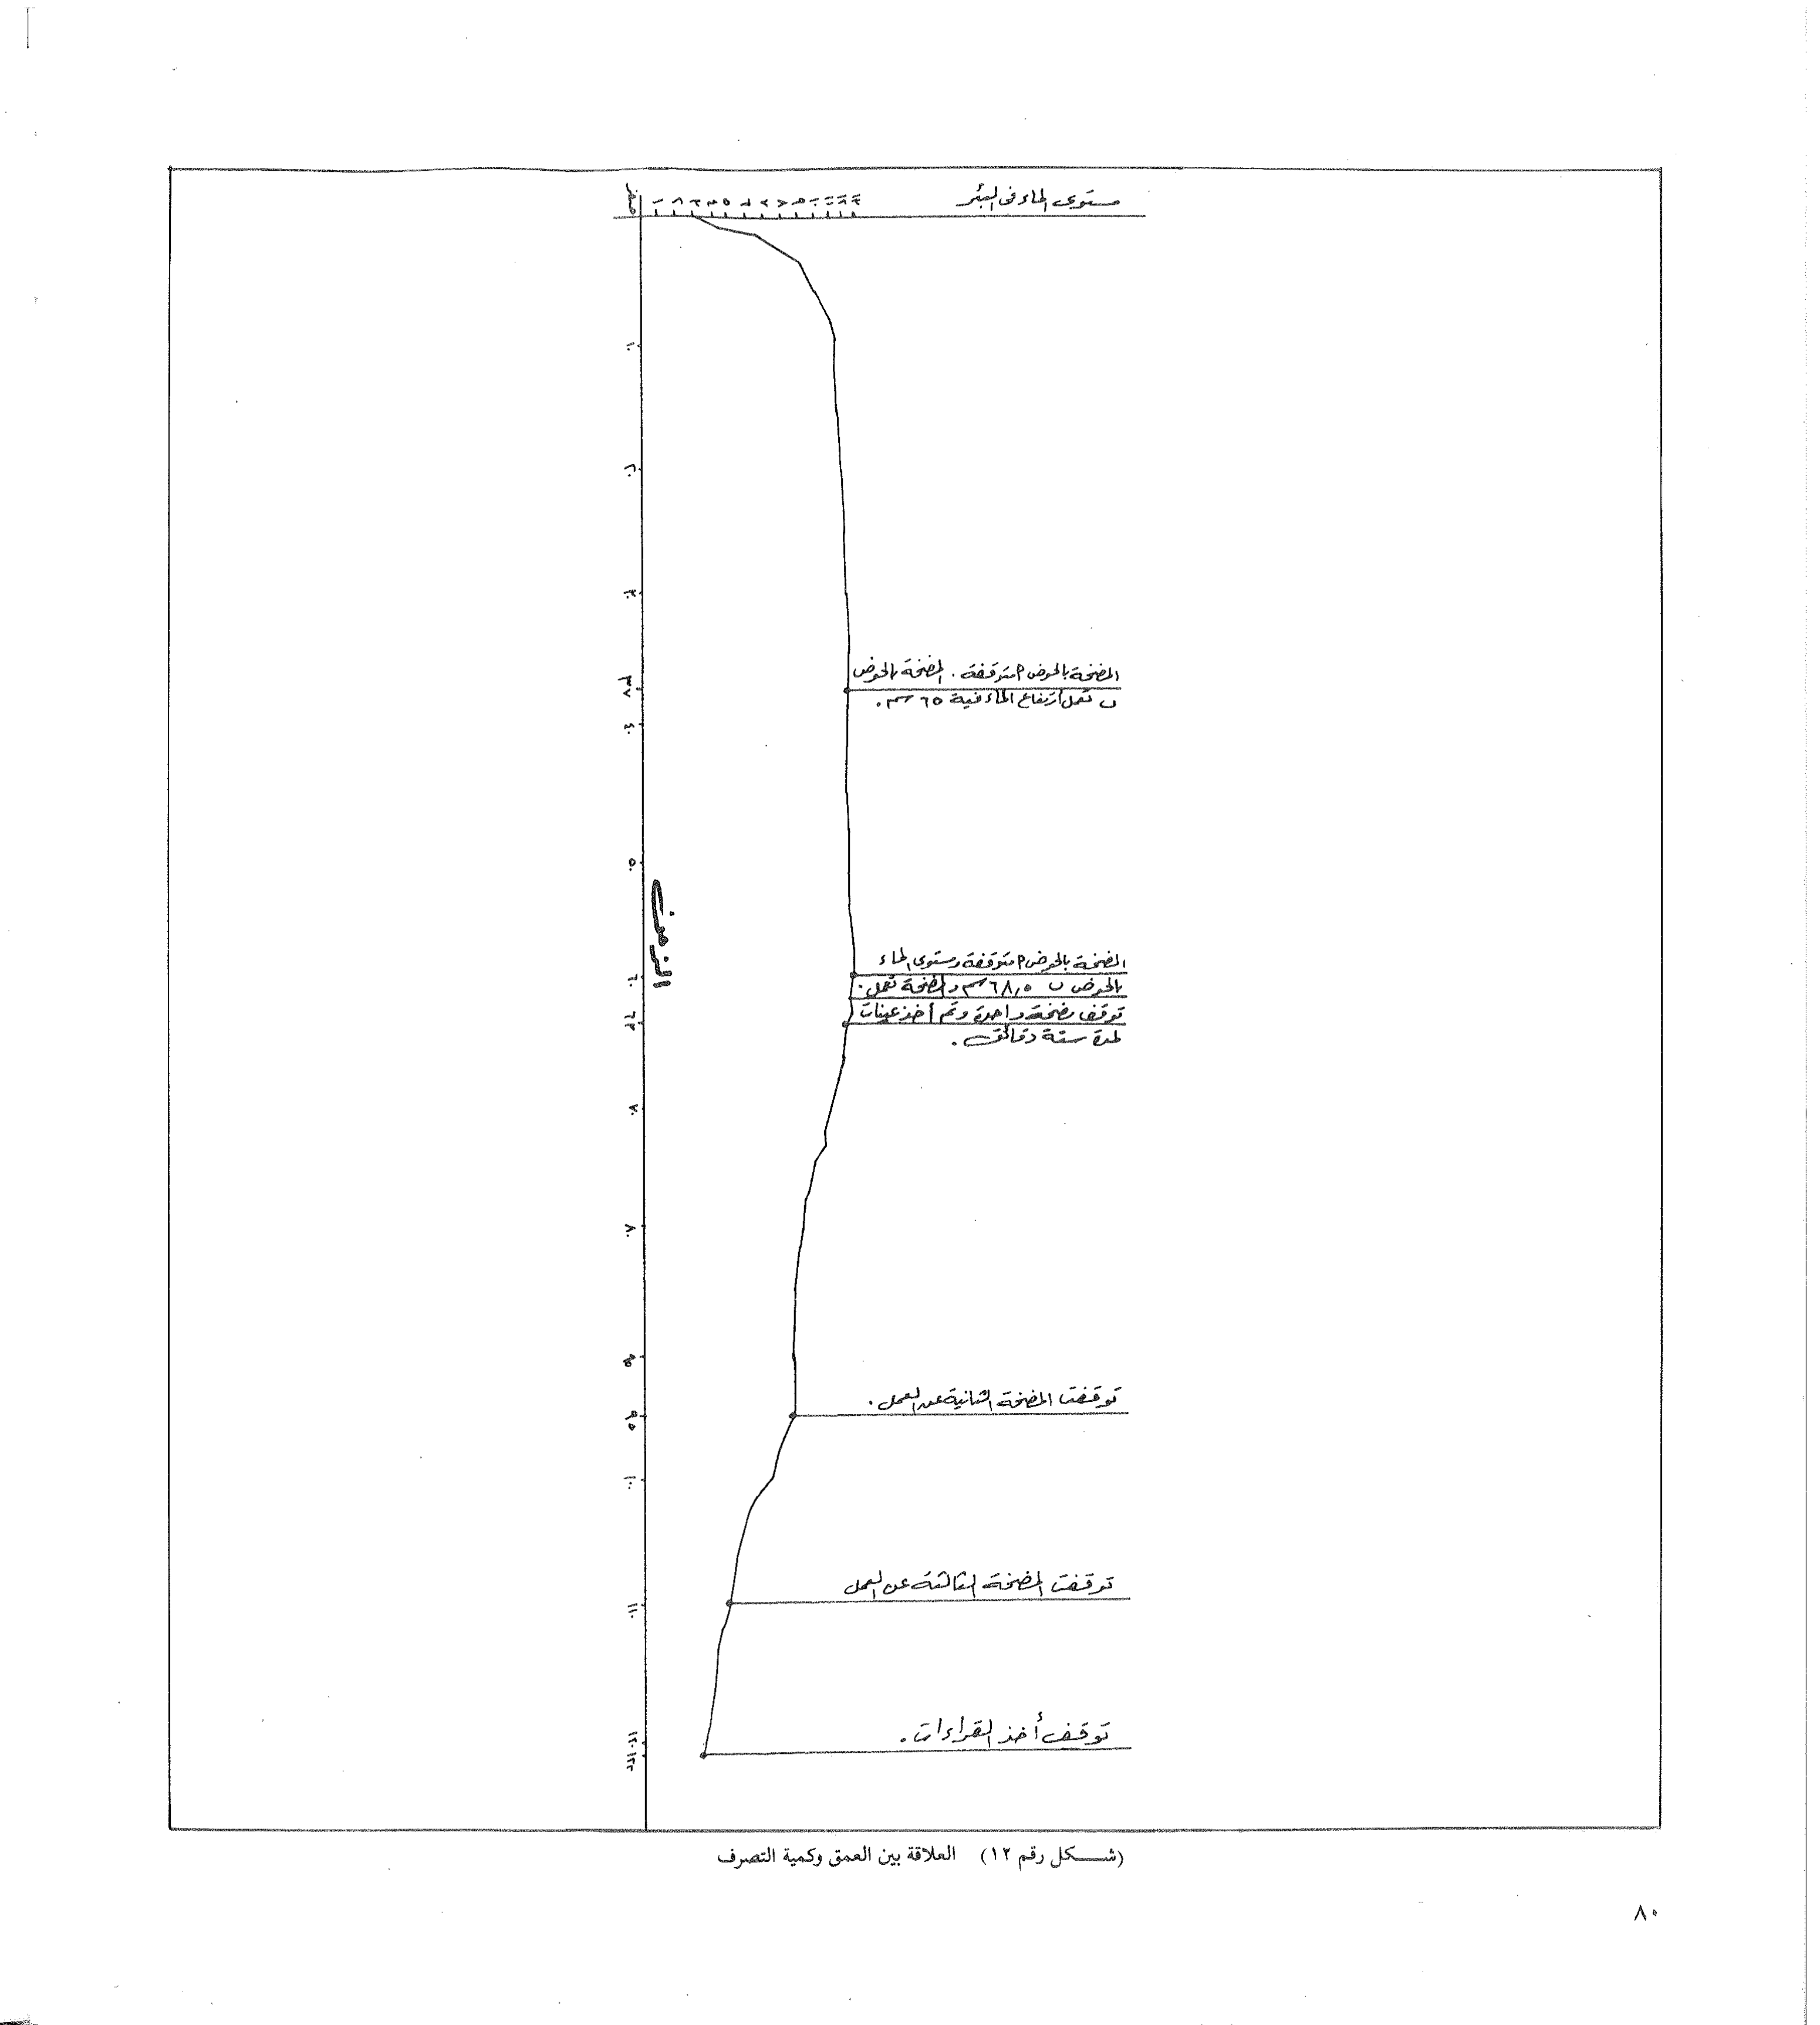 مستوى الماء فى البئر
صفر ١ ٢ ٣ ٤ ٥ ٦ ٧ ٨ ٩ ١٠ ١١ ١٢ ١٣
١٠
٢٠
٣٠
المضخة بالحوض م متوقفة . المضخة بالحوض
٣٧
ب تعمل ارتفاع الماء فية ٦٥ سم .
٤٠
٥٠
الزمن
المضخة بالحوض م متوقفة ومستوى الماء
٦٠
بالحوض ب ٦٨,٥ سم والمضخة تعمل .
توقف مضخة واحدة وتم أخذ عينات
٦٣
لمدة ستة دقائق .
٧٠
٨٠
توقفت المضخة الثانية عن العمل .
٩٥
١٠٠
توقفت المضخة الثالثة عن العمل
١١٠
توقف أخذ القراءات .
١٢٠
١٢٢
(شــكل رقم ١٢) العلاقة بين العمق وكمية التصرف
٨٠